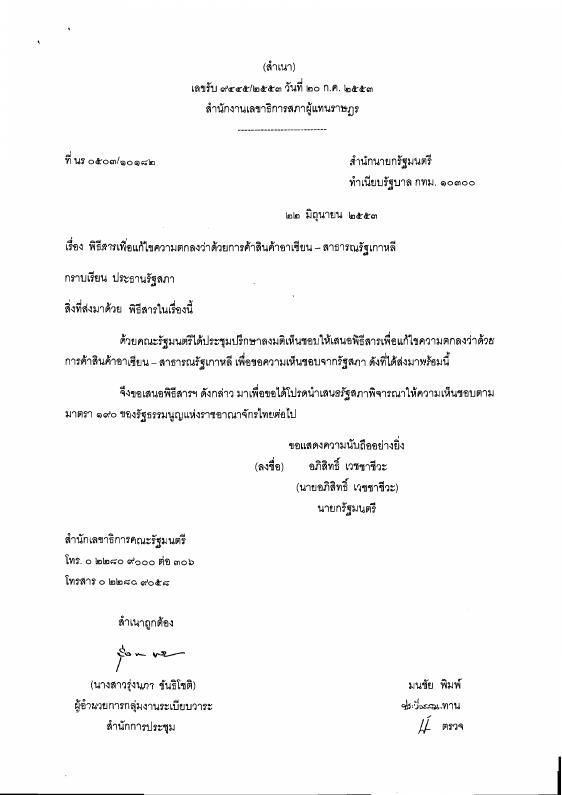 (สำเนา)
เลขรับ ๙๔๔๕/๒๕๕๓ วันที่ ๒๐ ก.ค. ๒๕๕๓
สำนักงานเลขาธิการสภาผู้แทนราษฎร
ที่ นร ๐๕๐๓/๑๐๑๘๒
สำนักนายกรัฐมนตรี
ทำเนียบรัฐบาล กทม. ๑๐๓๐๐
๒๒ มิถุนายน ๒๕๕๓
เรื่อง พิธีสารเพื่อแก้ไขความตกลงว่าด้วยการค้าสินค้าอาเซียน – สาธารณรัฐเกาหลี
กราบเรียน ประธานรัฐสภา
สิ่งที่ส่งมาด้วย พิธีสารในเรื่องนี้
ด้วยคณะรัฐมนตรีได้ประชุมปรึกษาลงมติเห็นชอบให้เสนอพิธีสารเพื่อแก้ไขความตกลงว่าด้วย
การค้าสินค้าอาเซียน – สาธารณรัฐเกาหลี เพื่อขอความเห็นชอบจากรัฐสภา ดังที่ได้ส่งมาพร้อมนี้
จึงขอเสนอพิธีสารฯ ดังกล่าว มาเพื่อขอได้โปรดนำเสนอรัฐสภาพิจารณาให้ความเห็นชอบตาม
มาตรา ๑๙๐ ของรัฐธรรมนูญแห่งราชอาณาจักรไทยต่อไป
ขอแสดงความนับถืออย่างยิ่ง
(ลงชื่อ) อภิสิทธิ์ เวชชาชีวะ
(นายอภิสิทธิ์ เวชชาชีวะ)
นายกรัฐมนตรี
สำนักเลขาธิการคณะรัฐมนตรี
โทร. ๐ ๒๒๘๐ ๙๐๐๐ ต่อ ๓๐๖
โทรสาร ๐ ๒๒๘๐ ๙๐๕๘
สำเนาถูกต้อง
(นางสาวรุ่งนภา ขันธิโชติ)
ผู้อำนวยการกลุ่มงานระเบียบวาระ
สำนักการประชุม
มนชัย พิมพ์
ทาน
ตรวจ